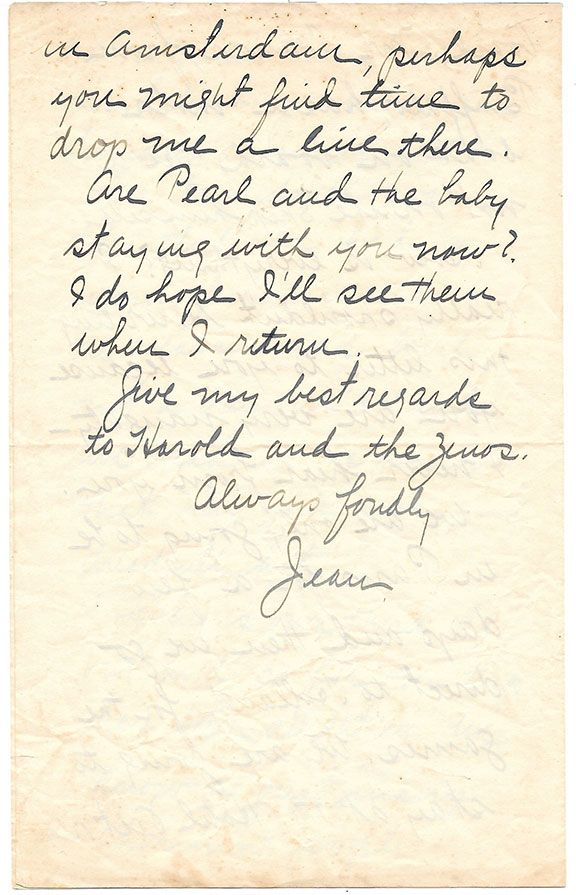 in Amsterdam, perhaps
you might find time to
drop me a line there.
Are Pearl and the baby
staying with you now?
I do hope I'll see them
when I return.
Give my best regards
to Harold and the Zinos.
Always fondly
Jean